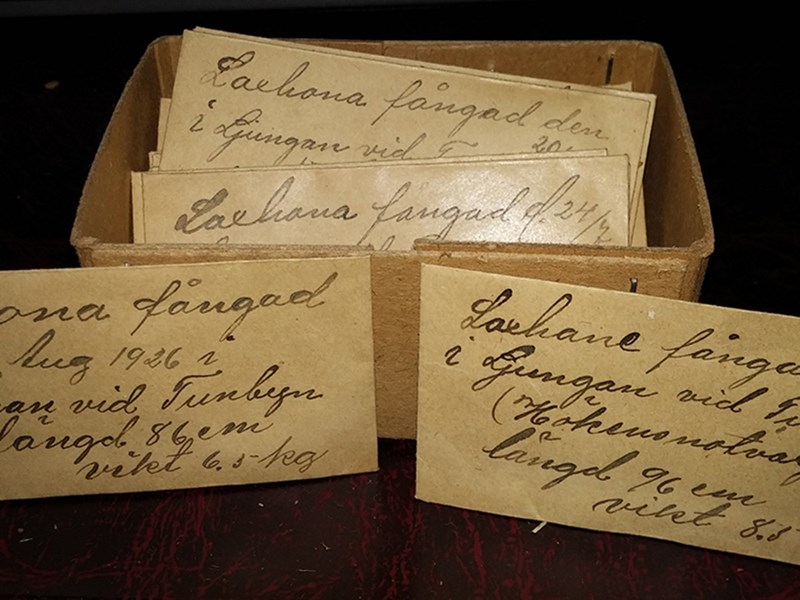 Laxhona fångad den
i Ljungan vid
Laxhona fångad d. 24/7
ona fångad
Aug 1926 i
an vid Tunbyn
längd 86 cm
vikt 6.5 kg
Laxhane fånga
i Ljungan vid Tu
(Hökensnotvar
längd 96 cm
vikt 8.5